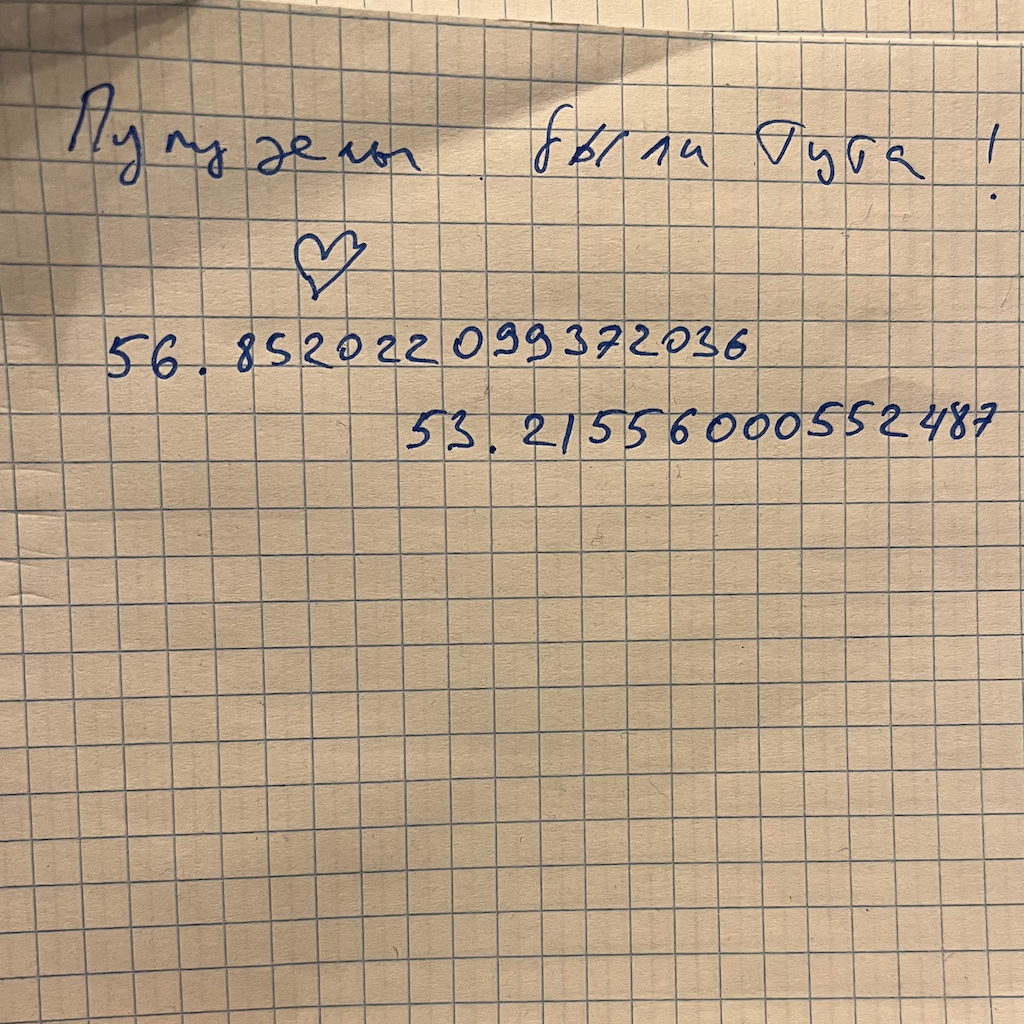 Пупузены были тута!
56.852022099372036
53.21556000552487